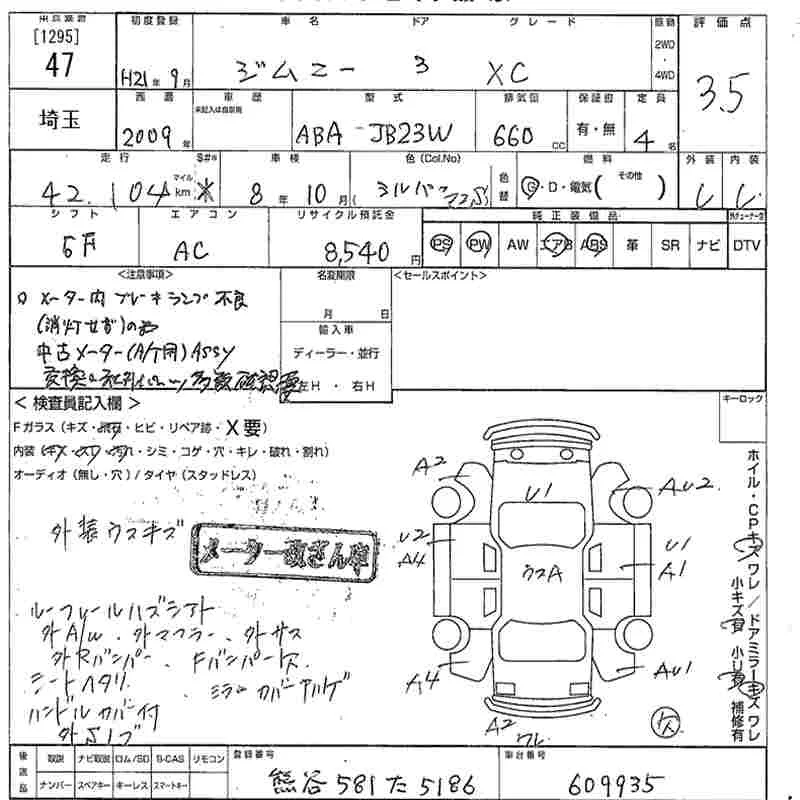 [1295]
47
初度登録 車名 ドア グレード 駆動 評価点
H21年9月 ジムニー 3 XC 2WD・4WD 3.5
埼玉
西暦 車歴 型式 排気量 保証書 定員
未記入は自家用
2009年 ABA-JB23W 660cc 有・無 4名
走行 $#* 車検 色(Col.No) 色替 燃料 外装 内装
42,104 マイル km * 8年10月 シルバー G・D・電気( その他 )
シフト エアコン リサイクル預託金 純正装備品
5F AC 8,540円 PS PW AW エアB ABS 革 SR ナビ DTV
<注意事項> 名変期限 <セールスポイント>
メーター内 ブレーキランプ不良
月 日
(消灯せず)の為
輸入車
中古メーター(A/T用)ASSY
ディーラー・並行
左H・右H
<検査員記入欄> キーロック
Fガラス(キズ・・ヒビ・リペア跡・X要)
内装(キズ・スレ・汚れ・シミ・コゲ・穴・キレ・破れ・割れ)
オーディオ(無し・穴)/タイヤ(スタッドレス)
外装ウスキズ
メーター改ざん車
ルーフレールハズシアト
外A/w . 外マフラー . 外サス
外Rバンパー . Fバンパー下穴 .
シートヘタリ . ミラーカバー
ハンドルカバー付
外Sノブ
A2 U1 AU2
U2 A4 ウスA U1 A1
A4 AU1
A2 ワレ
ホイル・CPキズ ワレ/ドアミラーキズ ワレ
小キズ有 小U有 補修有
後送品 取説 ナビ取説 ロム/SD B-CAS リモコン 登録番号 車台番号
ナンバー スペアキー キーレス スマートキー 熊谷 581 た 5186 609935